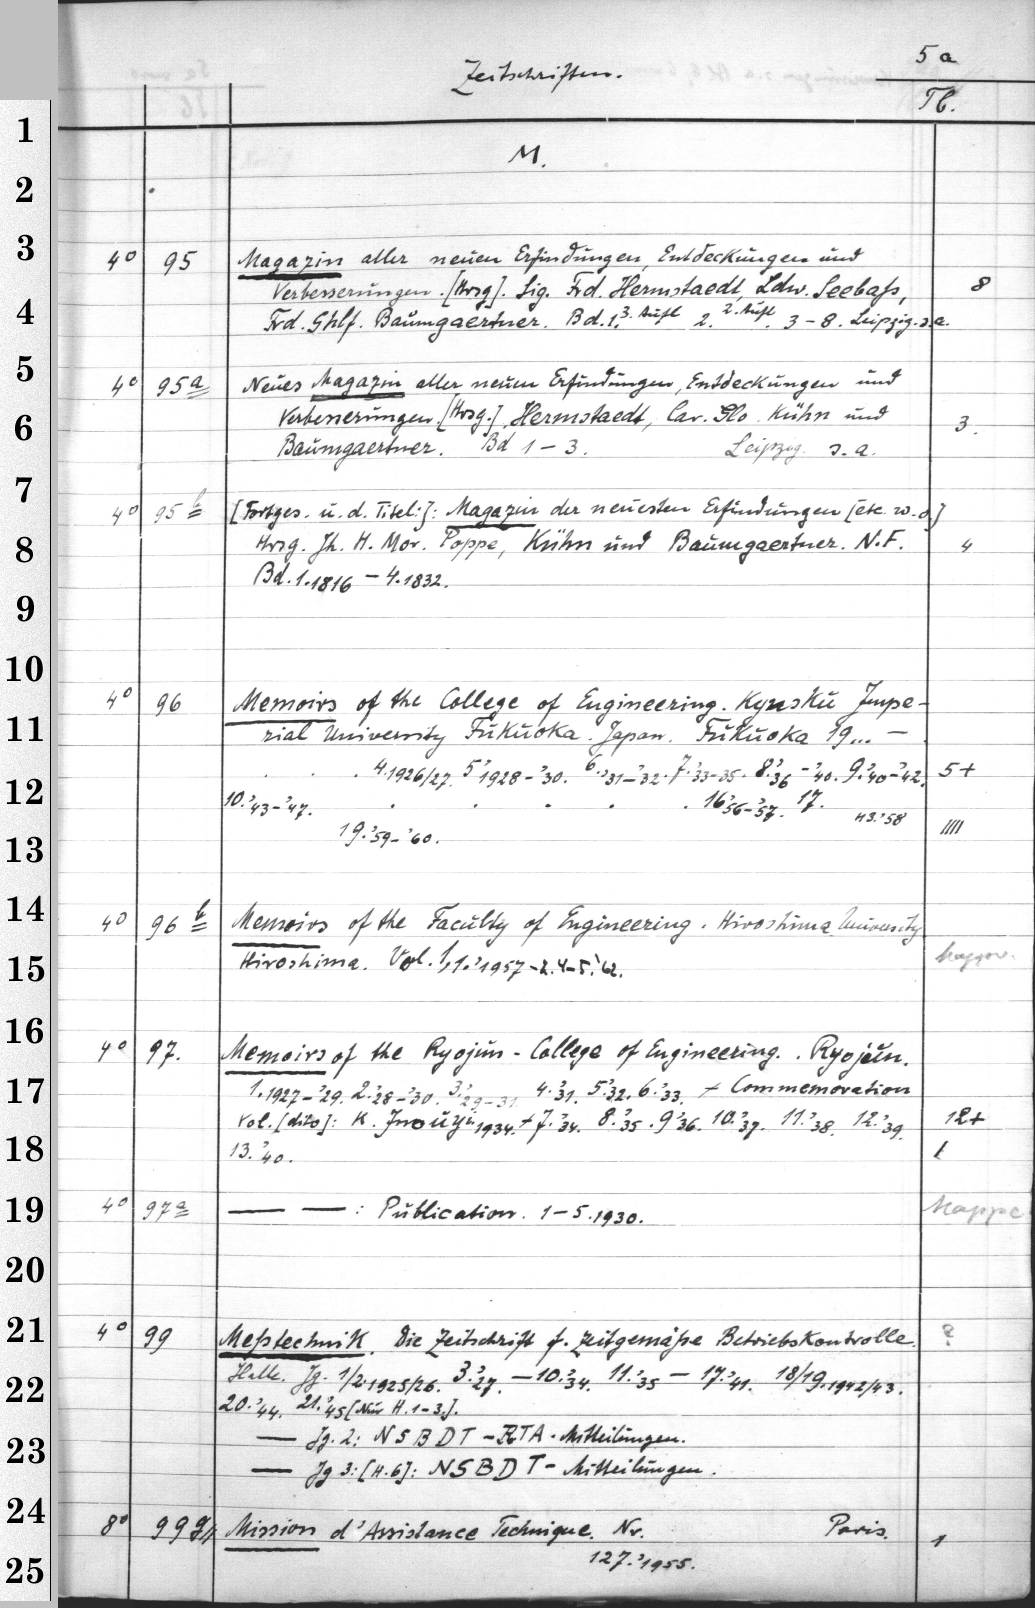 5a
Zeitschriften.
Tl.
M.
4° 95 Magazin aller neuen Erfindungen, Entdeckungen und
Verbesserungen. [Hrsg]. Sig. Frd. Hermstaedt, Ldw. Seebaß, 8
Frd. Ghlf. Baumgaertner. Bd. 1. 3. Aufl 2. 2. Aufl. 3-8. Leipzig. s.a.
4° 95a Neues Magazin aller neuen Erfindungen, Entdeckungen und
Verbesserungen. [Hrsg.], Hermstaedt, Car. Glo. Kühn und 3.
Baumgaertner. Bd 1-3. Leipzig. s.a.
4° 95b [Fortges. u. d. Titel:]: Magazin der neuesten Erfindungen [etc. w. o.]
Hrsg. Jh. H. Mor. Poppe, Kühn und Baumgaertner. N.F. 4
Bd. 1.1816-4.1832.
4° 96 Memoirs of the College of Engineering. Kyusku Impe-
rial University Fukuoka. Japan. Fukuoka 19...-
. . . 4.1926/27. 5.'1928-'30. 6.'31-'32. 7.'33-35. 8.'36-'40. 9.'40-'42. 5+
10.'43-'47. . . . . . 16.'56-'57. 17. H3.'58 IIII
19.'59-'60.
4° 96b Memoirs of the Faculty of Engineering. Hiroshima University
Hiroshima. Vol. 1,1.'1957-2.4-5.'62.
4° 97. Memoirs of the Ryojun-College of Engineering. Ryojun.
1.1927-'29. 2.'28-'30. 3.'29-31 4.'31. 5.'32. 6.'33. + Commemoration
Vol. [dito]: K. Inouye 1934. + 7.'34. 8.'35. 9.'36. 10.'37. 11.'38. 12.'39. 12+
13.'40. I
4° 97a — — : Publication. 1-5.1930. Mappe
4° 99 Meßtechnik. Die Zeitschrift f. zeitgemäße Betriebskontrolle. ?
Halle. Jg. 1/2.1925/26. 3.'27.-10.'34. 11.'35-17.'41. 18/19.1942/43.
20.'44. 21.'45 [Nur H. 1-3.].
— Jg. 2: NSBDT-RTA-Mitteilungen.
— Jg 3: [H.6]: NSBDT-Mitteilungen.
8° 99g Mission d'Assistance Technique. Nr. Paris. 1
127.'1955.
1
2
3
4
5
6
7
8
9
10
11
12
13
14
15
16
17
18
19
20
21
22
23
24
25